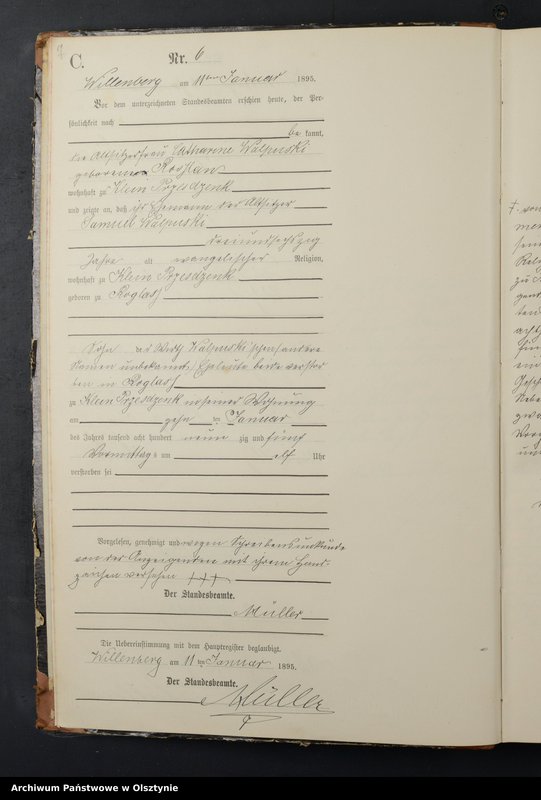 C.
Nr. 6
Willenberg am 11ten Januar 1895.
Vor dem unterzeichneten Standesbeamten erschien heute, der Per-
sönlichkeit nach
be kannt,
die Altsitzerfrau Catharine Walpuski
geborene
wohnhaft zu Klein Przesdzenk
und zeigte an, daß ihr Ehemann der Altsitzer
Samuel Walpuski
dreiundsechszig
Jahre alt evangelischer Religion,
wohnhaft zu Klein Przesdzenk
geboren zu Roglasz
Sohn der Wirth Walpuski'schen (andere
Namen unbekannt) Eheleute beide verstor
ben in Roglasz
zu Klein Przesdzenk in seiner Wohnung
am zehn ten Januar
des Jahres tausend acht hundert neun zig und fünf
Vormittags um elf Uhr
verstorben sei
Vorgelesen, genehmigt und wegen Schreibensunkunde
von der Anzeigenden mit ihrem Hand-
zeichen versehen +++
Der Standesbeamte.
Müller
Die Uebereinstimmung mit dem Hauptregister beglaubigt.
Willenberg am 11 ten Januar 1895.
Der Standesbeamte.
Müller
Archiwum Państwowe w Olsztynie